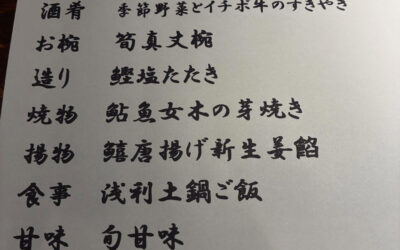 酒肴 季節野菜とイチボ牛のすきやき
お椀 筍真丈椀
造り 鰹塩たたき
焼物 鮎魚女木の芽焼き
揚物 鱚唐揚げ新生姜餡
食事 浅利土鍋ご飯
甘味 旬甘味